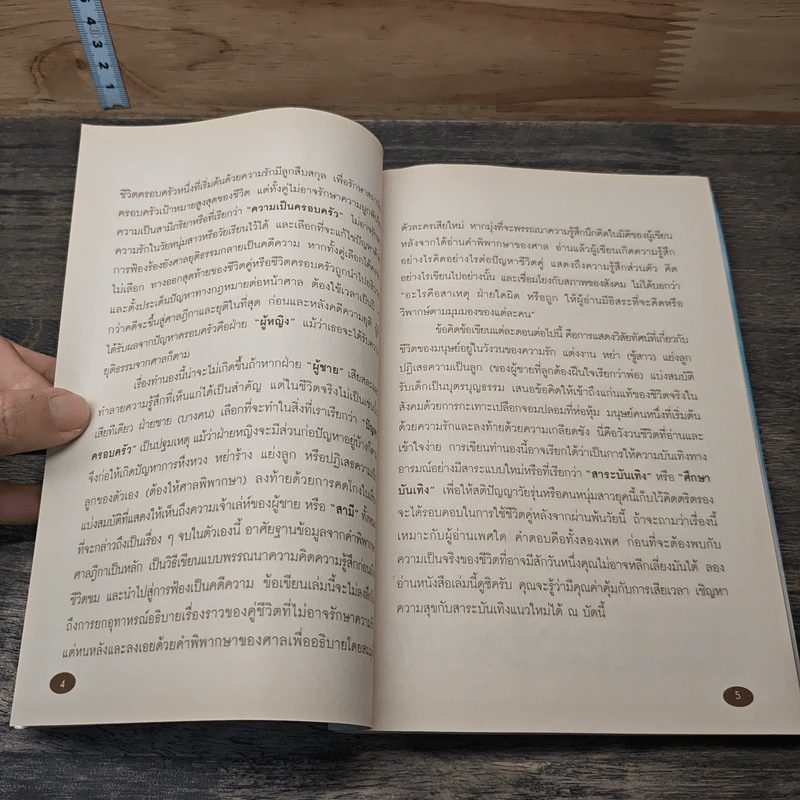 5 4 3 2 1
ชีวิตครอบครัวหนึ่งที่เริ่มต้นด้วยความรักมีลูกสืบสกุล เพื่อรักษา
ครอบครัวเป้าหมายสูงสุดของชีวิต แต่ทั้งคู่ไม่อาจรักษาความ
ความเป็นสามีภริยาหรือที่เรียกว่า "ความเป็นครอบครัว" ไม่อาจรักษา
ความรักในวัยหนุ่มสาวหรือวัยเรียนไว้ได้ และเลือกที่จะแก้ไขปัญหา
การฟ้องร้องยังศาลยุติธรรมกลายเป็นคดีความ หากทั้งคู่เลือกได้
ไม่เลือก ทางออกสุดท้ายของชีวิตคู่หรือชีวิตครอบครัวถูกนำไป
และตั้งประเด็นปัญหาทางกฎหมายต่อหน้าศาล ต้องใช้เวลาเป็นปี
กว่าคดีจะขึ้นสู่ศาลฎีกาและยุติในที่สุด ก่อนและหลังคดีความยุติ
ได้รับผลจากปัญหาครอบครัวคือฝ่าย "ผู้หญิง" แม้ว่าเธอจะได้รับความ
ยุติธรรมจากศาลก็ตาม
เรื่องทำนองนี้น่าจะไม่เกิดขึ้นถ้าหากฝ่าย "ผู้ชาย" เสียสละ
ทำลายความรู้สึกที่เห็นแก่ได้เป็นสำคัญ แต่ในชีวิตจริงไม่เป็นเช่น
เสียทีเดียว ฝ่ายชาย (บางคน) เลือกที่จะทำในสิ่งที่เราเรียกว่า
ครอบครัว" เป็นปฐมเหตุ แม้ว่าฝ่ายหญิงจะมีส่วนก่อปัญหาอยู่บ้าง
จึงก่อให้เกิดปัญหาการหึงหวง หย่าร้าง แย่งลูก หรือปฏิเสธความ
ลูกของตัวเอง (ต้องให้ศาลพิพากษา) ลงท้ายด้วยการคดโกง
แบ่งสมบัติที่แสดงให้เห็นถึงความเจ้าเล่ห์ของผู้ชาย หรือ "สามี"
ที่จะกล่าวถึงเป็นเรื่อง ๆ จบในตัวเองนี้ อาศัยฐานข้อมูลจากคำพิพากษา
ศาลฎีกาเป็นหลัก เป็นวิธีเขียนแบบพรรณนาความคิดความรู้สึกก่อน
ชีวิตขม และนำไปสู่การฟ้องเป็นคดีความ ข้อเขียนเล่มนี้จะไม่ลงลึก
ถึงการยกอุทาหรณ์อธิบายเรื่องราวของคู่ชีวิตที่ไม่อาจรักษาความ
แต่หนหลังและลงเอยด้วยคำพิพากษาของศาลเพื่ออธิบายโดย
4
ตัวละครเสียใหม่ หากมุ่งที่จะพรรณนาความรู้สึกนึกคิดในมิติของผู้เขียน
หลังจากได้อ่านคำพิพากษาของศาล อ่านแล้วผู้เขียนเกิดความรู้สึก
อย่างไรคิดอย่างไรต่อปัญหาชีวิตคู่ แสดงถึงความรู้สึกส่วนตัว คิด
อย่างไรเขียนไปอย่างนั้น และเชื่อมโยงกับสภาพของสังคม ไม่ได้บอกว่า
"อะไรคือสาเหตุ ฝ่ายใดผิด หรือถูก ให้ผู้อ่านมีอิสระที่จะคิดหรือ
วิพากษ์ตามมุมมองของแต่ละคน"
ข้อคิดข้อเขียนแต่ละตอนต่อไปนี้ คือการแสดงวิสัยทัศน์ที่เกี่ยวกับ
ชีวิตของมนุษย์อยู่ในวังวนของความรัก แต่งงาน หย่า (ชู้สาว) แย่งลูก
ปฏิเสธความเป็นลูก (ของผู้ชายที่ลูกต้องฝืนใจเรียกว่าพ่อ) แบ่งสมบัติ
รับเด็กเป็นบุตรบุญธรรม เสนอข้อคิดให้เข้าถึงแก่นแท้ของชีวิตจริงใน
สังคมด้วยการกะเทาะเปลือกจอมปลอมที่ห่อหุ้ม มนุษย์คนหนึ่งที่เริ่มต้น
ด้วยความรักและลงท้ายด้วยความเกลียดชัง นี่คือวังวนชีวิตที่อ่านและ
เข้าใจง่าย การเขียนทำนองนี้อาจเรียกได้ว่าเป็นการให้ความบันเทิงทาง
อารมณ์อย่างมีสาระแบบใหม่หรือที่เรียกว่า "สาระบันเทิง" หรือ "ศึกษา
บันเทิง" เพื่อให้สติปัญญาวัยรุ่นหรือคนหนุ่มสาวยุคนี้เก็บไว้คิดตริตรอง
จะได้รอบคอบในการใช้ชีวิตคู่หลังจากผ่านพ้นวัยนี้ ถ้าจะถามว่าเรื่องนี้
เหมาะกับผู้อ่านเพศใด คำตอบคือทั้งสองเพศ ก่อนที่จะต้องพบกับ
ความเป็นจริงของชีวิตที่อาจมีสักวันหนึ่งคุณไม่อาจหลีกเลี่ยงมันได้ ลอง
อ่านหนังสือเล่มนี้ดูซิครับ คุณจะรู้ว่ามีคุณค่าคุ้มกับการเสียเวลา เชิญหา
ความสุขกับสาระบันเทิงแนวใหม่ได้ ณ บัดนี้
5